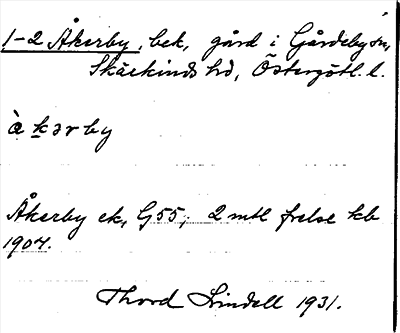 1-2 Åkerby, bek, gård i Gårdeby sn,
Skärkinds hd, Östergötl. l.
àkərby
Åkerby ek, G55; 2 mtl frelse kb
1904.
Thord Lindell 1931.